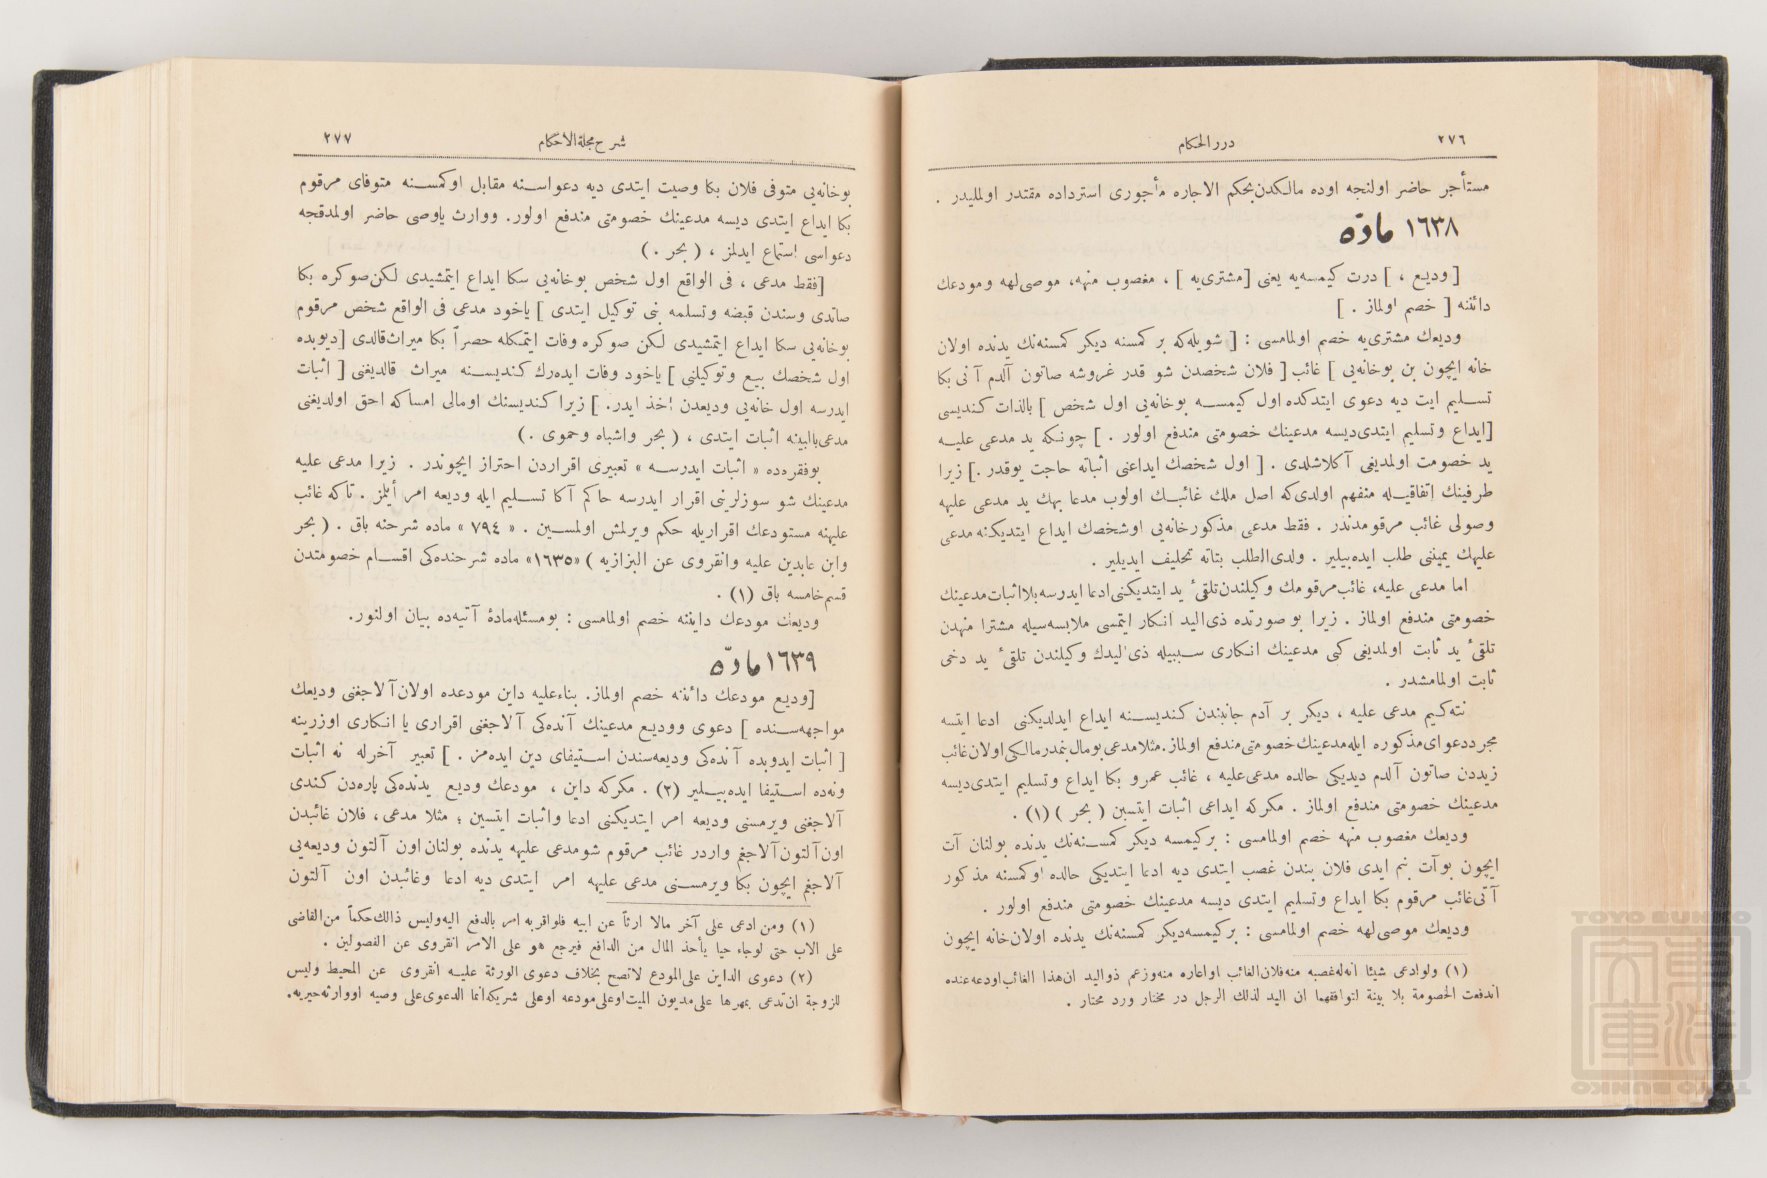 ٢٧٦
درر الحكام
مستأجر حاضر اولنجه اوده مالكدن بحكم الاجاره مأجورى استرداده مقتدر اولمليدر .
١٦٣٨ مادّه
[ وديع ، ] درت كيمسه‌يه يعنى [ مشترى‌يه ] ، مغصوب منهه، موصى‌لهه ومودعك
دائننه [ خصم اولماز . ]
وديعك مشترى‌يه خصم اولمامسى : [ شويله‌كه بر كمسنه ديكر كمسنه‌نك يدنده اولان
خانه ايچون بن بوخانه‌يى ] غائب [ فلان شخصدن شو قدر غروشه صاتون آلدم آنى بكا
تسليم ايت ديه دعوى ايتدكده اول كيمسه بوخانه‌يى اول شخص ] بالذات كنديسى
[ايداع وتسليم ايتدى‌ديسه مدعينك خصومتى مندفع اولور . ] چونكه يد مدعى عليه
يد خصومت اولمديغى آكلاشلدى . [ اول شخصك ايداعنى اثباته حاجت يوقدر .] زيرا
طرفينك اتفاقيله متفهم اولدى‌كه اصل ملك غائبك اولوب مدعا بهك يد مدعى عليهه
وصولى غائب مرقومدندر . فقط مدعى مذكورخانه‌يى اوشخصك ايداع ايتديكنه مدعى
عليهك يمينى طلب ايده‌بيلير . ولدى‌الطلب بتاته تحليف ايديلير .
اما مدعى عليه، غائب مرقومك وكيلندن تلقىٔ يد ايتديكنى ادعا ايدرسه بلااثبات مدعينك
خصومتى مندفع اولماز . زيرا بو صورتده ذى‌اليد انكار ايتمسى ملابسه‌سيله مشترا منهدن
تلقىٔ يد ثابت اولمديغى كبى مدعينك انكارى سببيله ذى‌اليدك وكيلندن تلقىٔ يد دخى
ثابت اولمامشدر .
نته‌كيم مدعى عليه ، ديكر بر آدم جانبندن كنديسنه ايداع ايدلديكنى ادعا ايتسه
مجرد دعواى مذكوره ايله مدعينك خصومتى مندفع اولماز. مثلا مدعى بومال بنمدر مالكى اولان غائب
زيددن صاتون آلدم ديديكى حالده مدعى‌عليه ، غائب عمرو بكا ايداع وتسليم ايتدى‌ديسه
مدعينك خصومتى مندفع اولماز . مكركه ايداعى اثبات ايتسين ( بحر ) (١) .
وديعك مغصوب منهه خصم اولمامسى : بركيمسه ديكر كمسنه‌نك يدنده بولنان آت
ايچون بوآت بنم ايدى فلان بندن غصب ايتدى ديه ادعا ايتديكى حالده اوكمسنه مذكور
آتى غائب مرقوم بكا ايداع وتسليم ايتدى ديسه مدعينك خصومتى مندفع اولور .
وديعك موصى‌لهه خصم اولمامسى : بركيمسه ديكر كمسنه‌نك يدنده اولان خانه ايچون
(١) ولوادعى شيئا انه له غصبه منه فلان الغائب اواعاره منه وزعم ذواليد ان هذا الغائب اودعه عنده
اندفعت الخصومة بلا بينة لتوافقهما ان اليد لذلك الرجل در مختار ورد محتار .
٢٧٧
شرح مجلة الاحكام
بوخانه‌يى متوفى فلان بكا وصيت ايتدى ديه دعواسنه مقابل اوكمسنه متوفاى مرقوم
بكا ايداع ايتدى ديسه مدعينك خصومتى مندفع اولور. ووارث ياوصى حاضر اولمدقجه
دعواسى استماع ايدلمز ، ( بحر . )
[فقط مدعى ، فى الواقع اول شخص بوخانه‌يى سكا ايداع ايتمشيدى لكن صوكره بكا
صاتدى وسندن قبضه وتسلمه بنى توكيل ايتدى ] ياخود مدعى فى الواقع شخص مرقوم
بوخانه‌يى سكا ايداع ايتمشيدى لكن صوكره وفات ايتمكله حصراً بكا ميراث قالدى [ديوبده
اول شخصك بيع وتوكيلنى ] ياخود وفات ايده‌رك كنديسنه ميراث قالديغنى [ اثبات
ايدرسه اول خانه‌يى وديعدن اخذ ايدر. ] زيرا كنديسنك اومالى امساكه احق اولديغنى
مدعى‌بالبينه اثبات ايتدى ، ( بحر واشباه وحموى . )
بوفقره‌ده « اثبات ايدرسه » تعبيرى اقراردن احتراز ايچوندر . زيرا مدعى عليه
مدعينك شو سوزلرينى اقرار ايدرسه حاكم آكا تسليم ايله وديعه امر أيلمز . تاكه غائب
عليهنه مستودعك اقراريله حكم ويرلمش اولمسين . « ٧٩٤ » ماده شرحنه باق . ( بحر
وابن عابدين عليه وانقروى عن البزازيه ) «١٦٣٥» ماده شرحنده‌كى اقسام خصومتدن
قسم خامسه باق (١) .
وديعك مودعك دايننه خصم اولمامسى : بومسئله مادهٔ آتيه‌ده بيان اولنور.
١٦٣٩ مادّه
[وديع مودعك دائننه خصم اولماز. بناءعليه داين مودعده اولان آلاجغنى وديعك
مواجهه‌سنده ] دعوى ووديع مدعينك آنده‌كى آلاجغنى اقرارى يا انكارى اوزرينه
[ اثبات ايدوبده آنده‌كى وديعه‌سندن استيفاى دين ايده‌مز . ] تعبير آخرله نه اثبات
ونه‌ده استيفا ايده‌بيلير (٢) . مكركه داين ، مودعك وديع يدنده‌كى پاره‌دن كندى
آلاجغنى ويرمسنى وديعه امر ايتديكنى ادعا واثبات ايتسين ؛ مثلا مدعى، فلان غائبدن
اون آلتون آلاجغم واردر غائب مرقوم شومدعى عليهه يدنده بولنان اون آلتون وديعه‌يى
آلاجغم ايچون بكا ويرمسنى مدعى عليهه امر ايتدى ديه ادعا وغائبدن اون آلتون
(١) ومن ادعى على آخر مالا ارثاً عن ابيه فلواقر به امر بالدفع اليه وليس ذالك حكماً من القاضى
على الاب حتى لوجاء حيا يأخذ المال من الدافع فيرجع هو على الامر انقروى عن الفصولين .
(٢) دعوى الداين على‌المودع لاتصح بخلاف دعوى الورثة عليه انقروى عن المحيط وليس
للزوجة ان تدعى بمهرها على مديون الميت اوعلى مودعه اوعلى شريكه انما الدعوى على وصيه اووارثه خيريه.